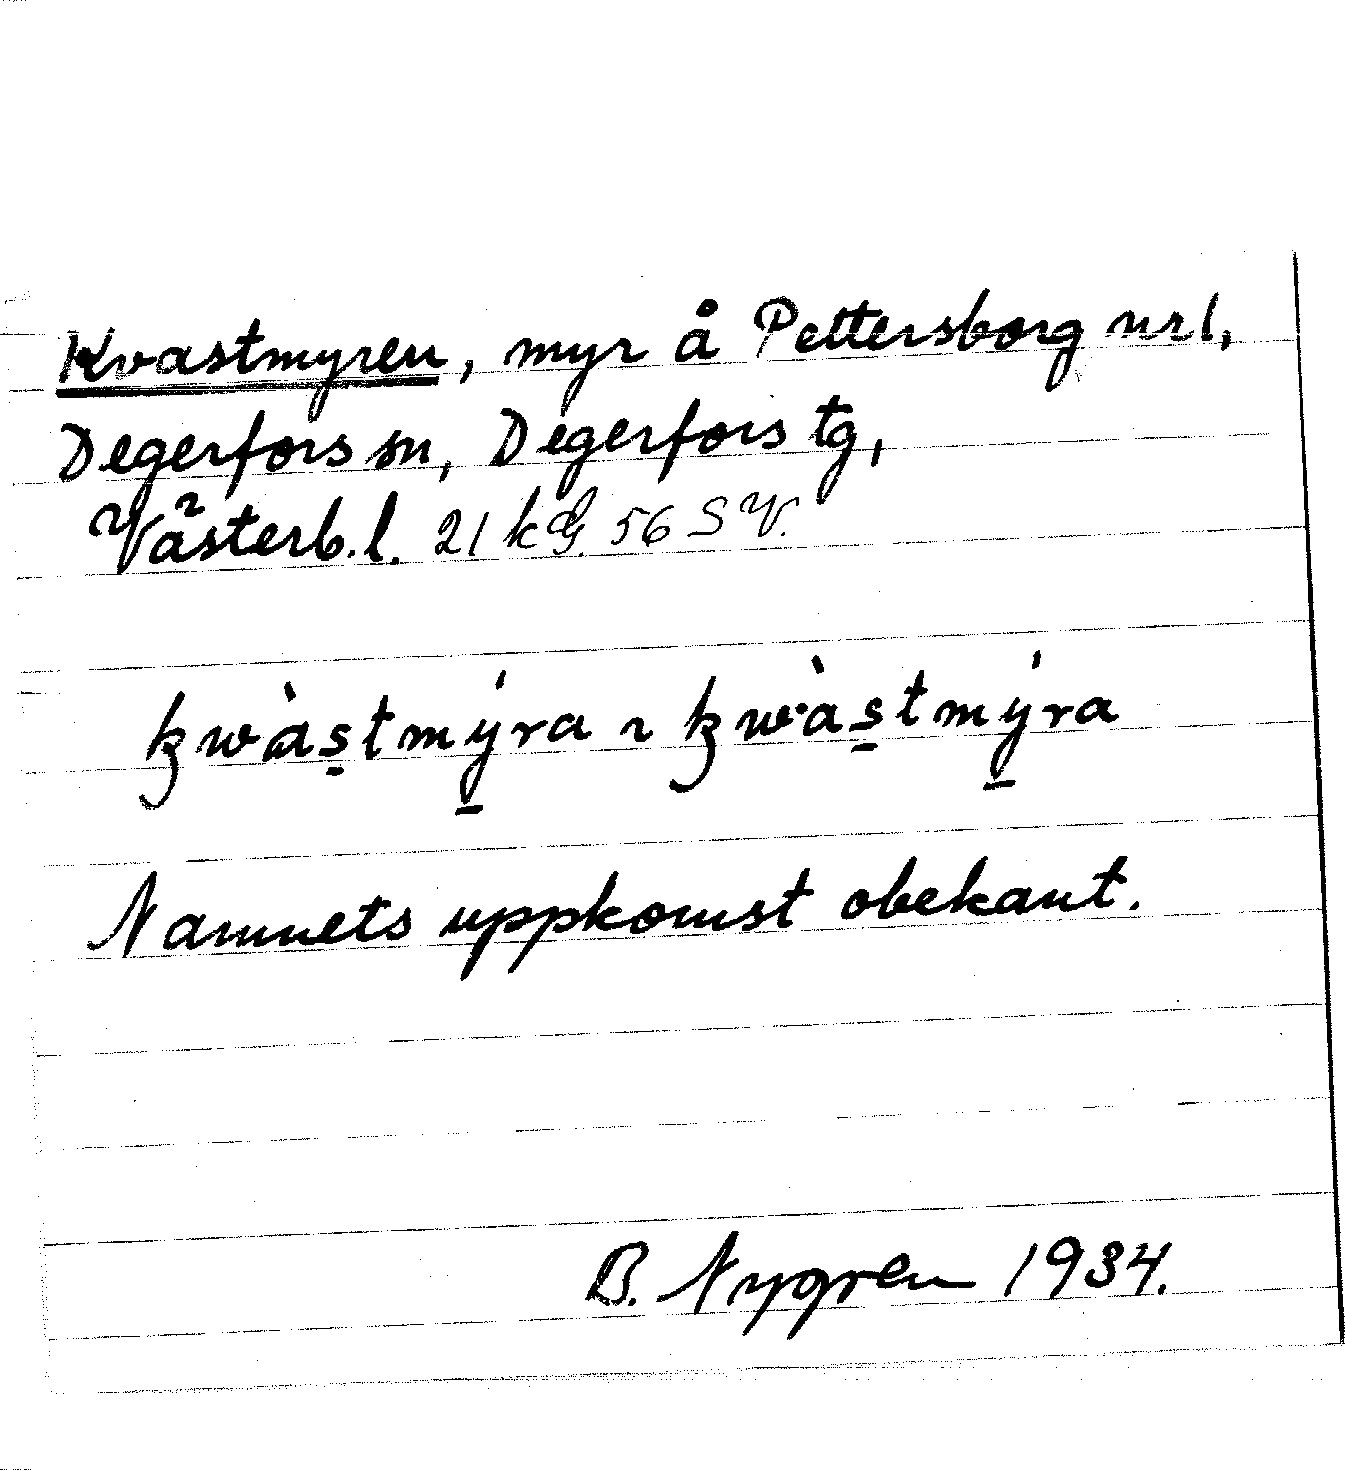 Kvastmyren, myr å Pettersborg nr 1,
Degerfors sn, Degerfors tg,
Västerb. l. 21 kG. 56 SV.
kwàstmýra ~ kwàstmýra
Namnets uppkomst obekant.
B. Nygren 1934.